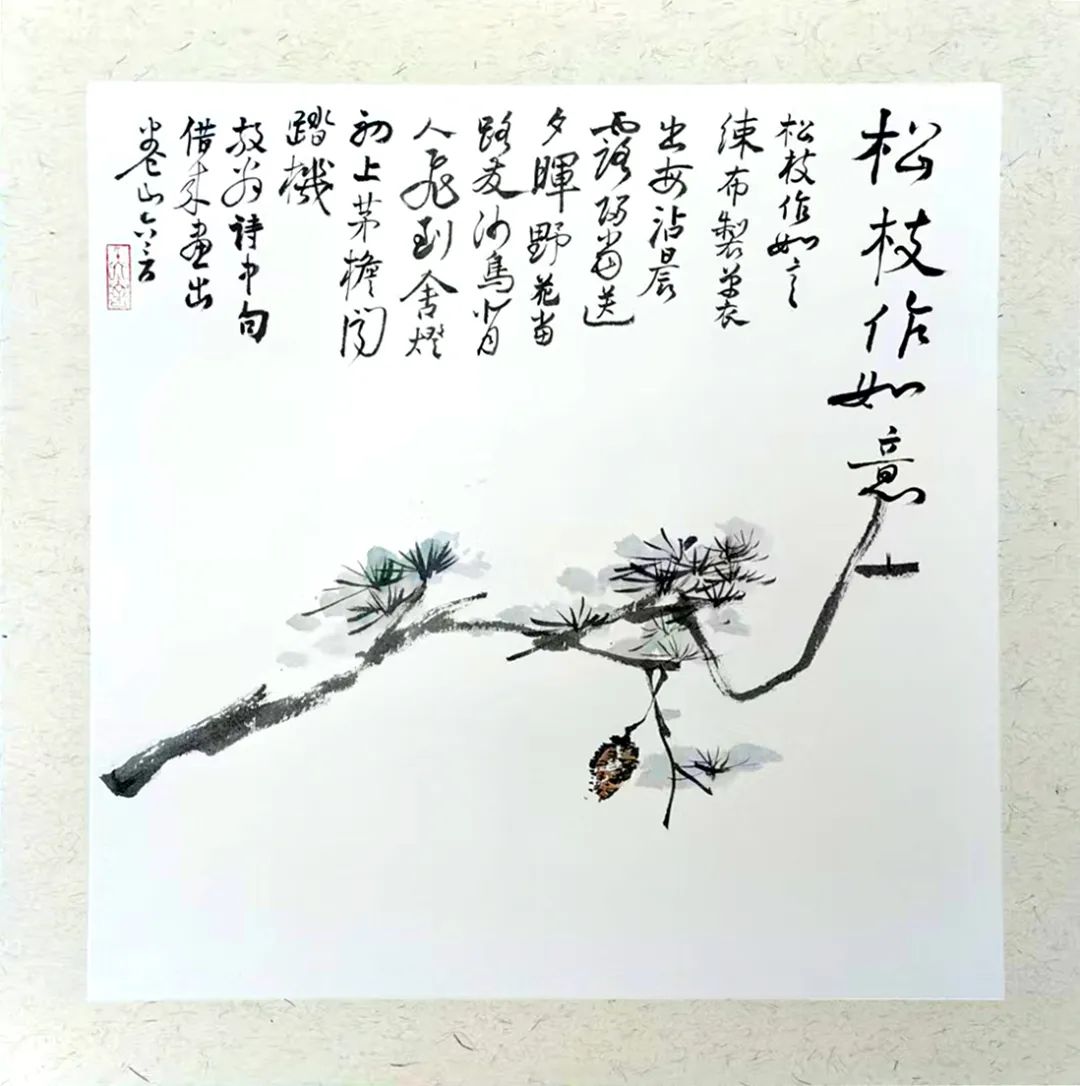 松枝作如意
松枝作如意
練布製单衣
出每沾晨
露歸當送
夕暉野花當
路发沙鳥背
人飛到舍燈
初上茅檐闻
踏機
放翁詩中句
借来畫出
山